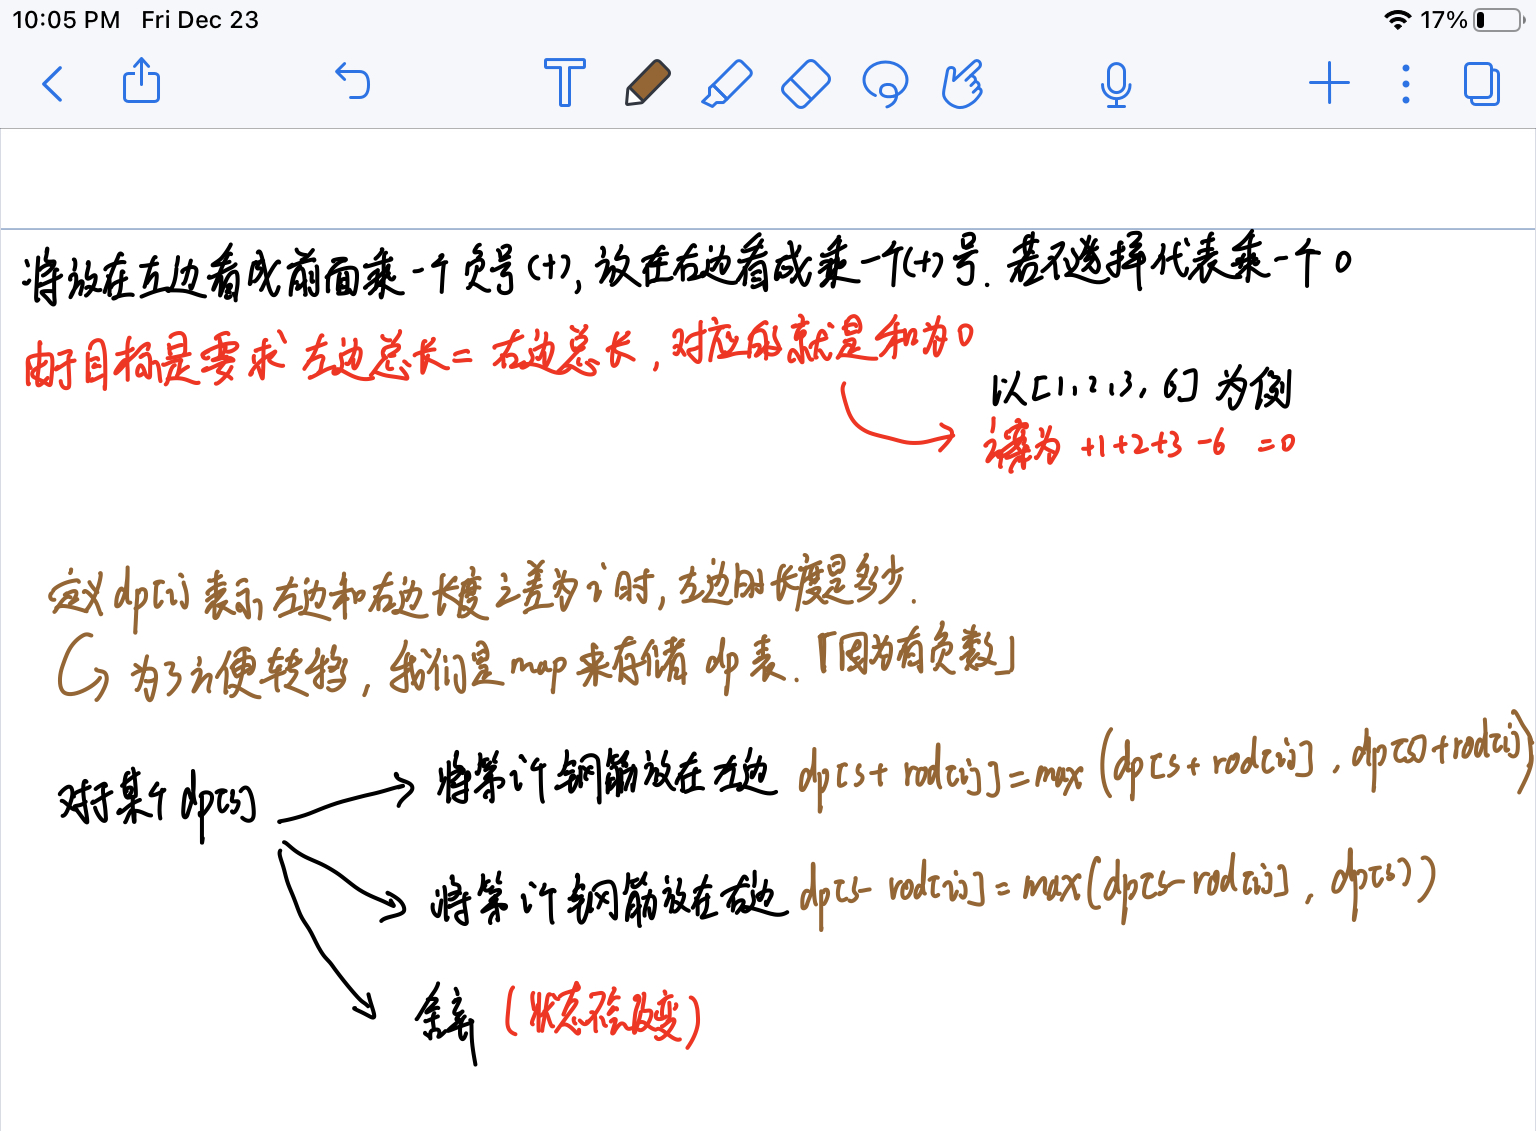 10:05 PM Fri Dec 23 17%
将放在左边看成前面乘一个负号(+), 放在右边看成乘一个(+)号. 若不选择代表乘一个0
由于目标是要求 左边总长 = 右边总长, 对应的就是和为0
以[1,2,3,6]为例
译为 +1+2+3-6 =0
定义dp[i]表示左边和右边长度之差为i时, 左边的长度是多少.
为了方便转移, 我们是map来存储dp表.「因为有负数」
对于某个dp[s]
将第i个钢筋放在左边 dp[s+rod[i]]=max(dp[s+rod[i]], dp[s]+rod[i])
将第i个钢筋放在右边 dp[s-rod[i]]=max(dp[s-rod[i]], dp[s])
(状态不会改变)